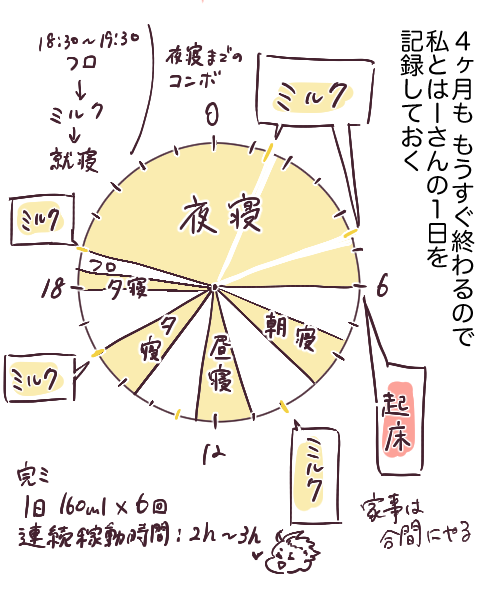 4ヶ月も もうすぐ終わるので
私とはーさんの1日を
記録しておく
18:30〜19:30
フロ
↓
ミルク
↓
就寝
夜寝までの
コンボ
0
ミルク
夜寝
ミルク
フロ
夕寝
18
6
朝寝
昼寝
夕寝
ミルク
12
ミルク
起床
完ミ
1日 160ml×6回
連続稼動時間:2h〜3h
家事は
合間にやる